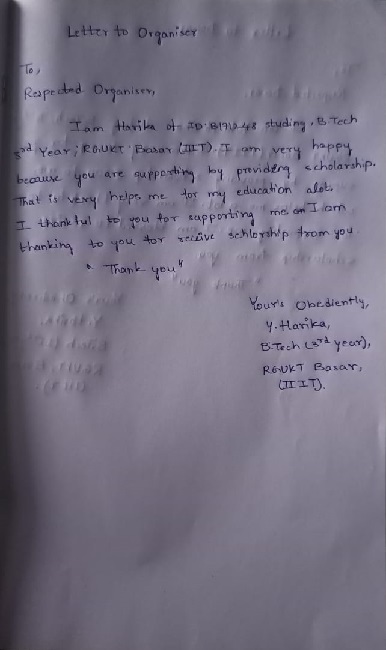 Letter to Organiser
To,
Respected Organiser,
I am Harika of ID: B191248 studing, B.Tech
3rd Year; RGUKT Basar (IIIT). I am very happy
because you are supporting by providing scholarship.
That is very helps me for my education alot.
I thankful to you for supporting me an I am
thanking to you for receive schlorship from you
" Thank you"
Your's Obediently,
Y. Harika,
B.Tech (3rd year),
RGUKT Basar,
(IIIT).